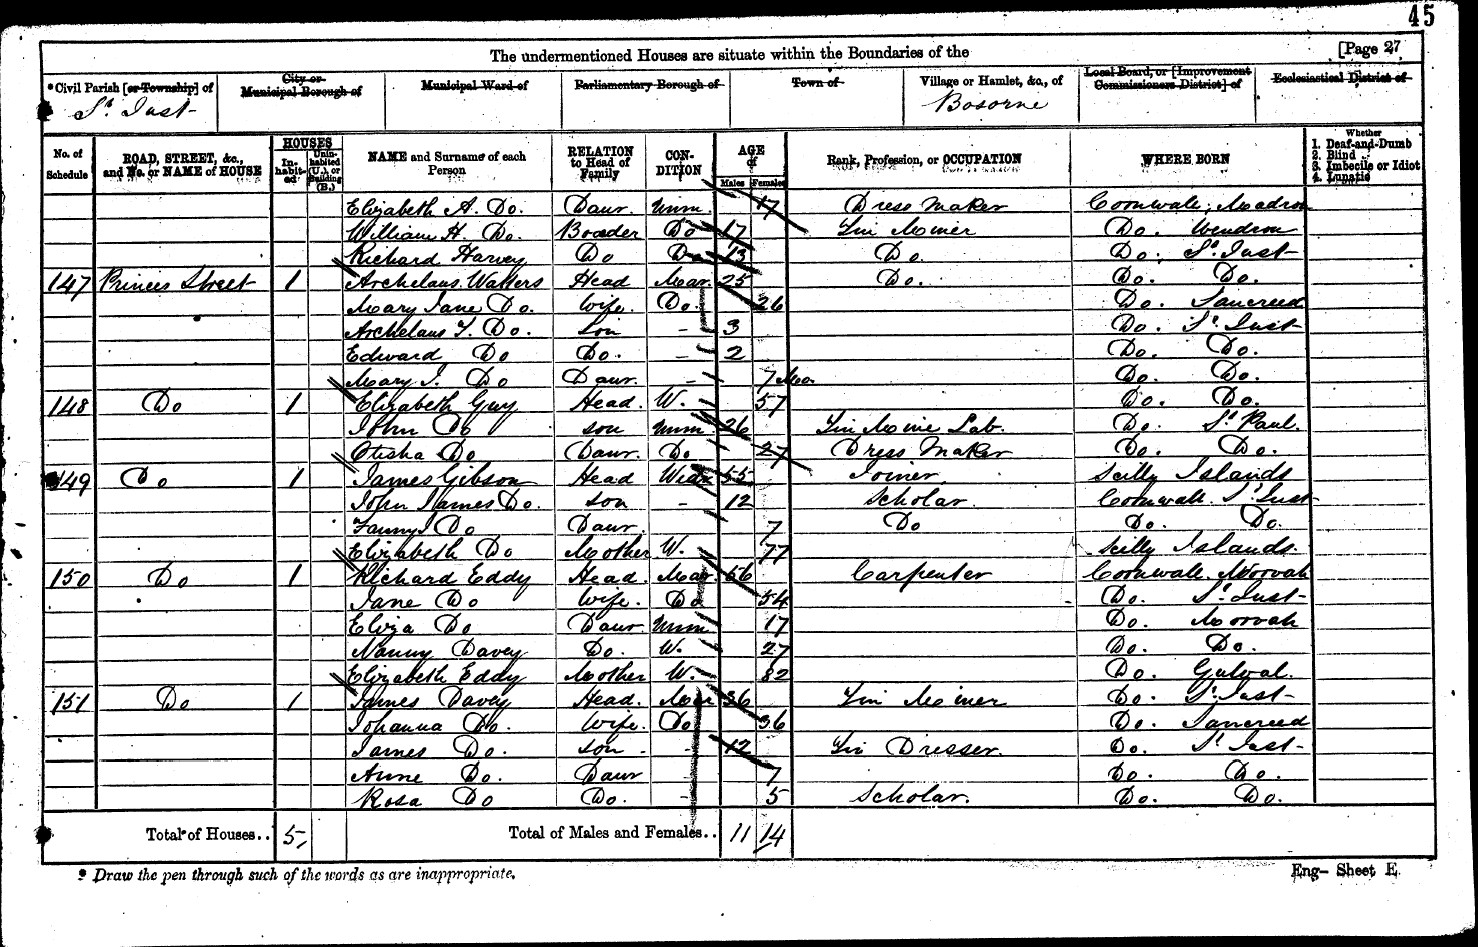 45
The undermentioned Houses are situate within the Boundaries of the [Page 27
*Civil Parish [or Township] of City or Municipal Borough of Municipal Ward of Parliamentary Borough of Town of Village or Hamlet, &c., of Local Board, or [Improvement Commissioners District] of Ecclesiastical District of
St. Just Bosorne
No. of Schedule ROAD, STREET, &c., and No. or NAME of HOUSE HOUSES Inhabited Uninhabited (U.), or Building (B.) NAME and Surname of each Person RELATION to Head of Family CONDITION AGE of Males Females Rank, Profession, or OCCUPATION WHERE BORN Whether 1. Deaf-and-Dumb 2. Blind 3. Imbecile or Idiot 4. Lunatic
Elizabeth A. Do. Daur. Unm. 17 Dress Maker Cornwall; Madron
William H. Do. Boader Do 17 Tin Miner Do. Wendron
Richard Harvey Do Do 13 Do. Do. St. Just
147 Princes Street 1 Archelaus Walters Head Mar. 25 Do. Do. Do.
Mary Jane Do. Wife. Do. 26 Do. Sancreed
Archelaus T. Do. Son - 3 Do. St. Just
Edward Do Do. - 2 Do. Do.
Mary J. Do Daur. - 7 Mo. Do. Do.
148 Do 1 Elizabeth Guy Head. W. 57 Do. Do.
John Do son Unm. 26 Tin Mine Lab. Do. St. Paul.
Do Daur. Do. 27 Dress Maker Do. Do.
149 Do 1 James Gibson Head 55 Joiner Scilly Islands
John James Do. son - 12 Scholar. Cornwall. St. Just
Fanny J Do Daur. 7 Do Do. Do.
Elizabeth Do Mother W. 77 Scilly Islands.
150 Do 1 Richard Eddy Head. Mar. 56 Carpenter Cornwall. Morvah
Jane Do Wife. Do 54 Do. St. Just
Eliza Do Daur Unm 17 Do. Morvah
Nanny Davey Do. W. 27 Do. Do.
Elizabeth Eddy Mother W. 82 Do. Gulval.
151 Do 1 James Davey Head. Mar 36 Tin Miner Do. St. Just
Johanna Do. Wife. Do 36 Do. Sancreed
James Do. son - 12 Tin Dresser. Do. St. Just
Anne Do. Daur 7 Do. Do.
Rosa Do Do. - 5 Scholar. Do. Do.
Total of Houses.. 5 Total of Males and Females.. 11 14
* Draw the pen through such of the words as are inappropriate. Eng- Sheet E.